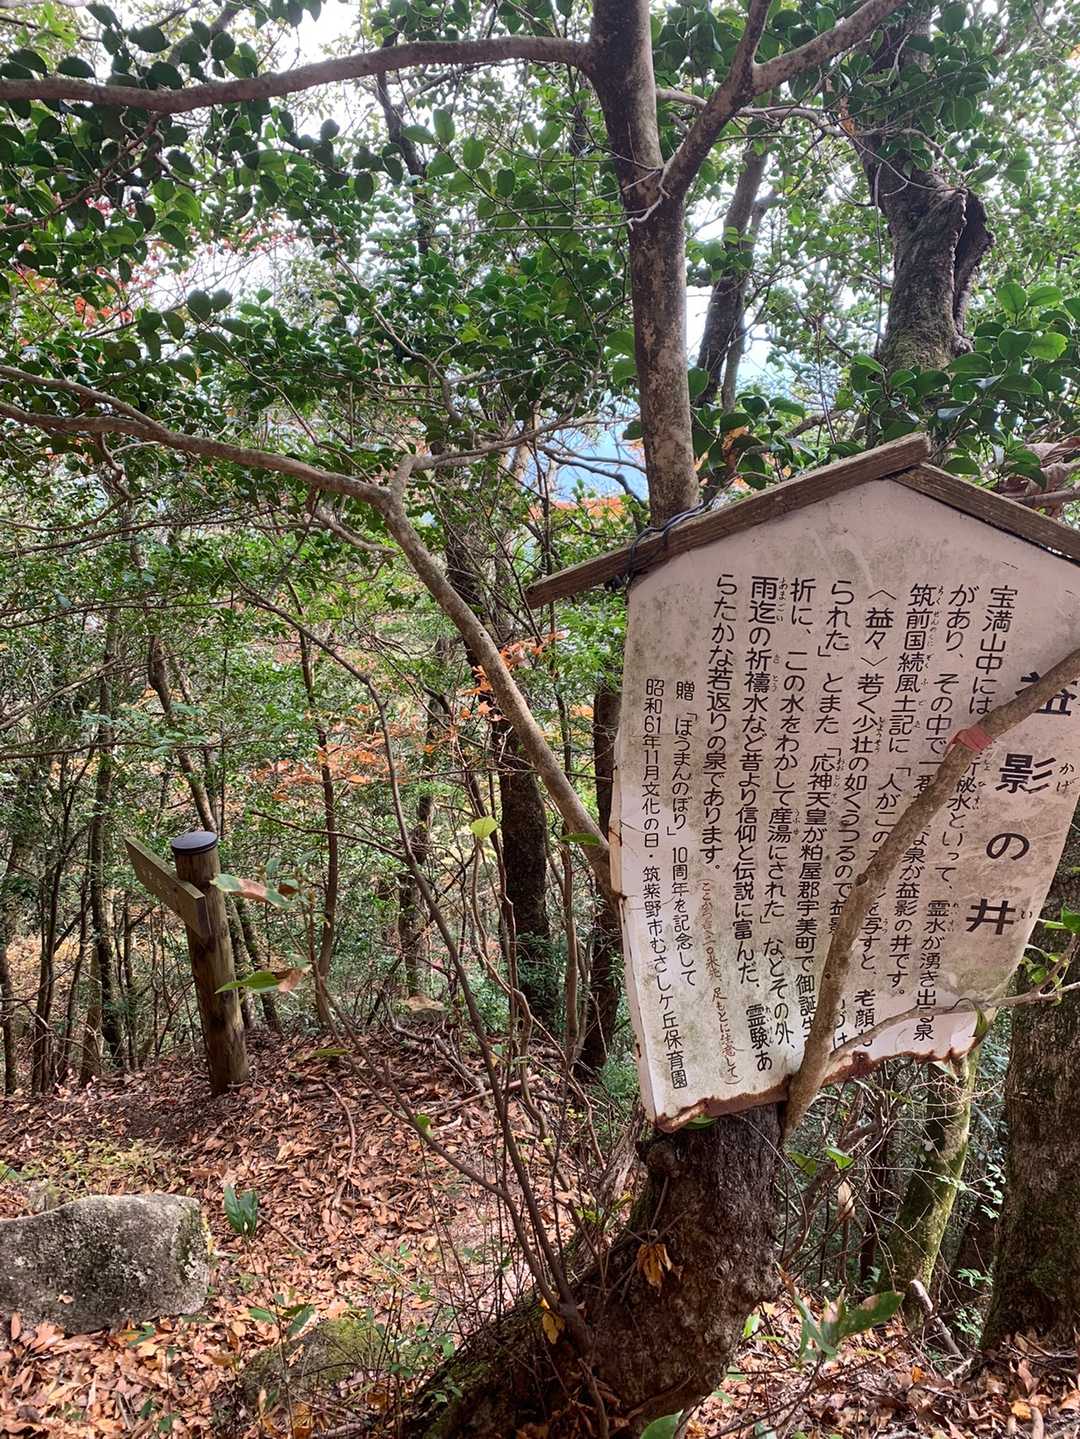 益影の井
かげ い
宝満山中には 秘水といって、霊水が湧き出る泉
があり、その中で一番 な泉が益影の井です。
筑前国続風土記に「人がこの を与すと、老顔
〈益々〉若く少壮の如くうつるので益影
られた」とまた「応神天皇が粕屋郡宇美町で御誕生
折に、この水をわかして産湯にされた」などその外、
雨迄の祈禱水など昔より信仰と伝説に富んだ、霊験あ
らたかな若返りの泉であります。
足もとに注意して
贈「ほうまんのぼり」10周年を記念して
昭和61年11月文化の日・筑紫野市むさしケ丘保育園